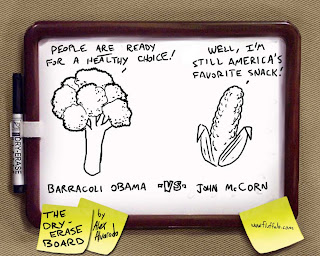 PEOPLE ARE READY
FOR A HEALTHY CHOICE!
WELL, I'M
STILL AMERICA'S
FAVORITE SNACK!
DRY-ERASE
BARRACOLI OBAMA -VS- JOHN McCORN
THE
DRY-
ERASE
BOARD
by
Alex
Alvarado